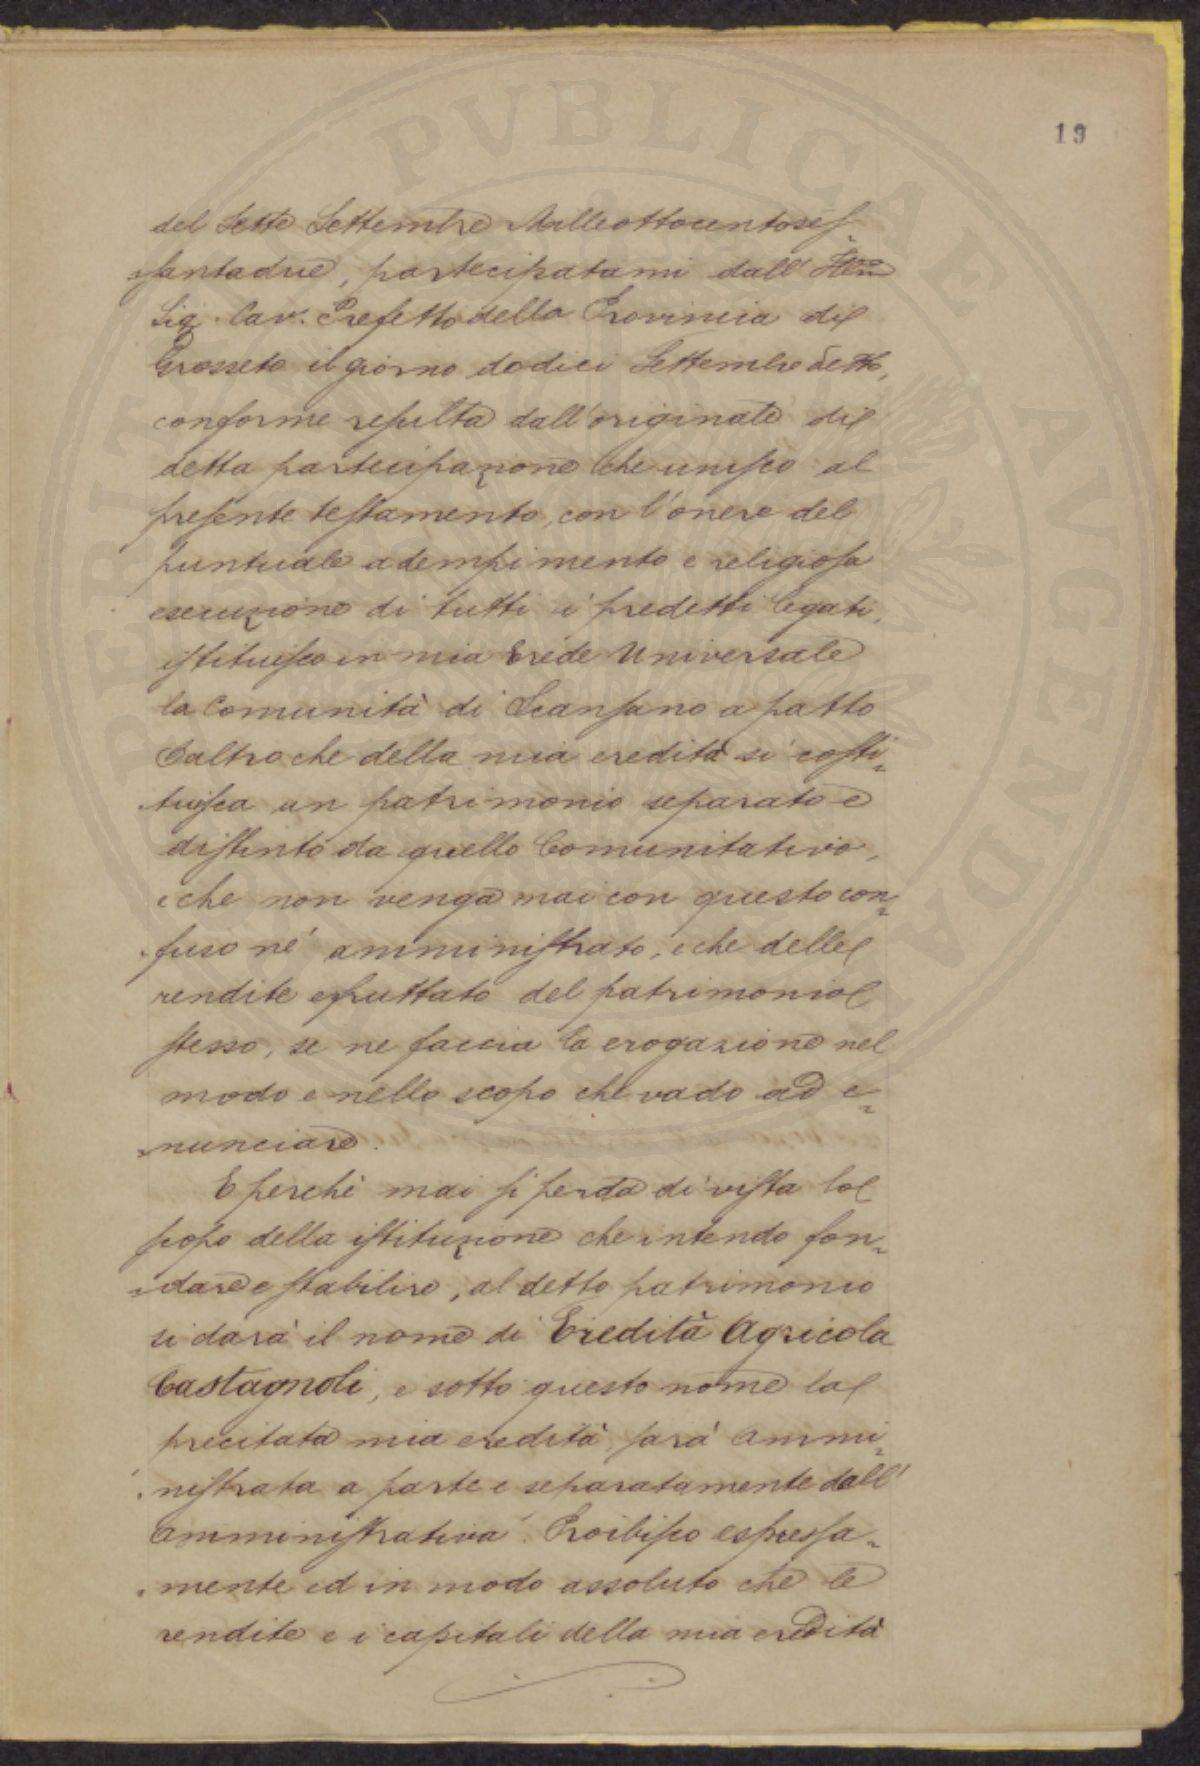 19
del Sette Settembre Milleottocentoses-
santadue, partecipatami dall'
Sig. Cav. Prefetto della Provincia di
Grosseto il giorno dodici Settembre detto,
conforme resulta dall'originale di
detta partecipazione che unisco al
presente testamento, con l'onere del
puntuale adempimento e religiosa
esecuzione di tutti i predetti legati,
istituisco in mia Erede Universale
la Comunità di Scansano a patto
Daltro che della mia eredità si costi=
tuisca un patrimonio separato e
distinto da quello Comunitativo,
e che non venga mai con questo con=
fuso né amministrato, e che delle
rendite e fruttato del patrimonio
stesso, se ne faccia la erogazione nel
modo e nello scopo che vado ad e=
=nunciare.
E perchè mai si perda di vista lo
scopo della istituzione che intendo fon=
=dare e stabilire, al detto patrimonio
si darà il nome di Eredità Agricola
Castagnoli, e sotto questo nome la
precitata mia eredità sarà ammi=
nistrata a parte e separatamente dall'
amministrativa. Proibisco espressa=
mente ed in modo assoluto che le
rendite e i capitali della mia eredità
PVBLICAE
AVGENDAE